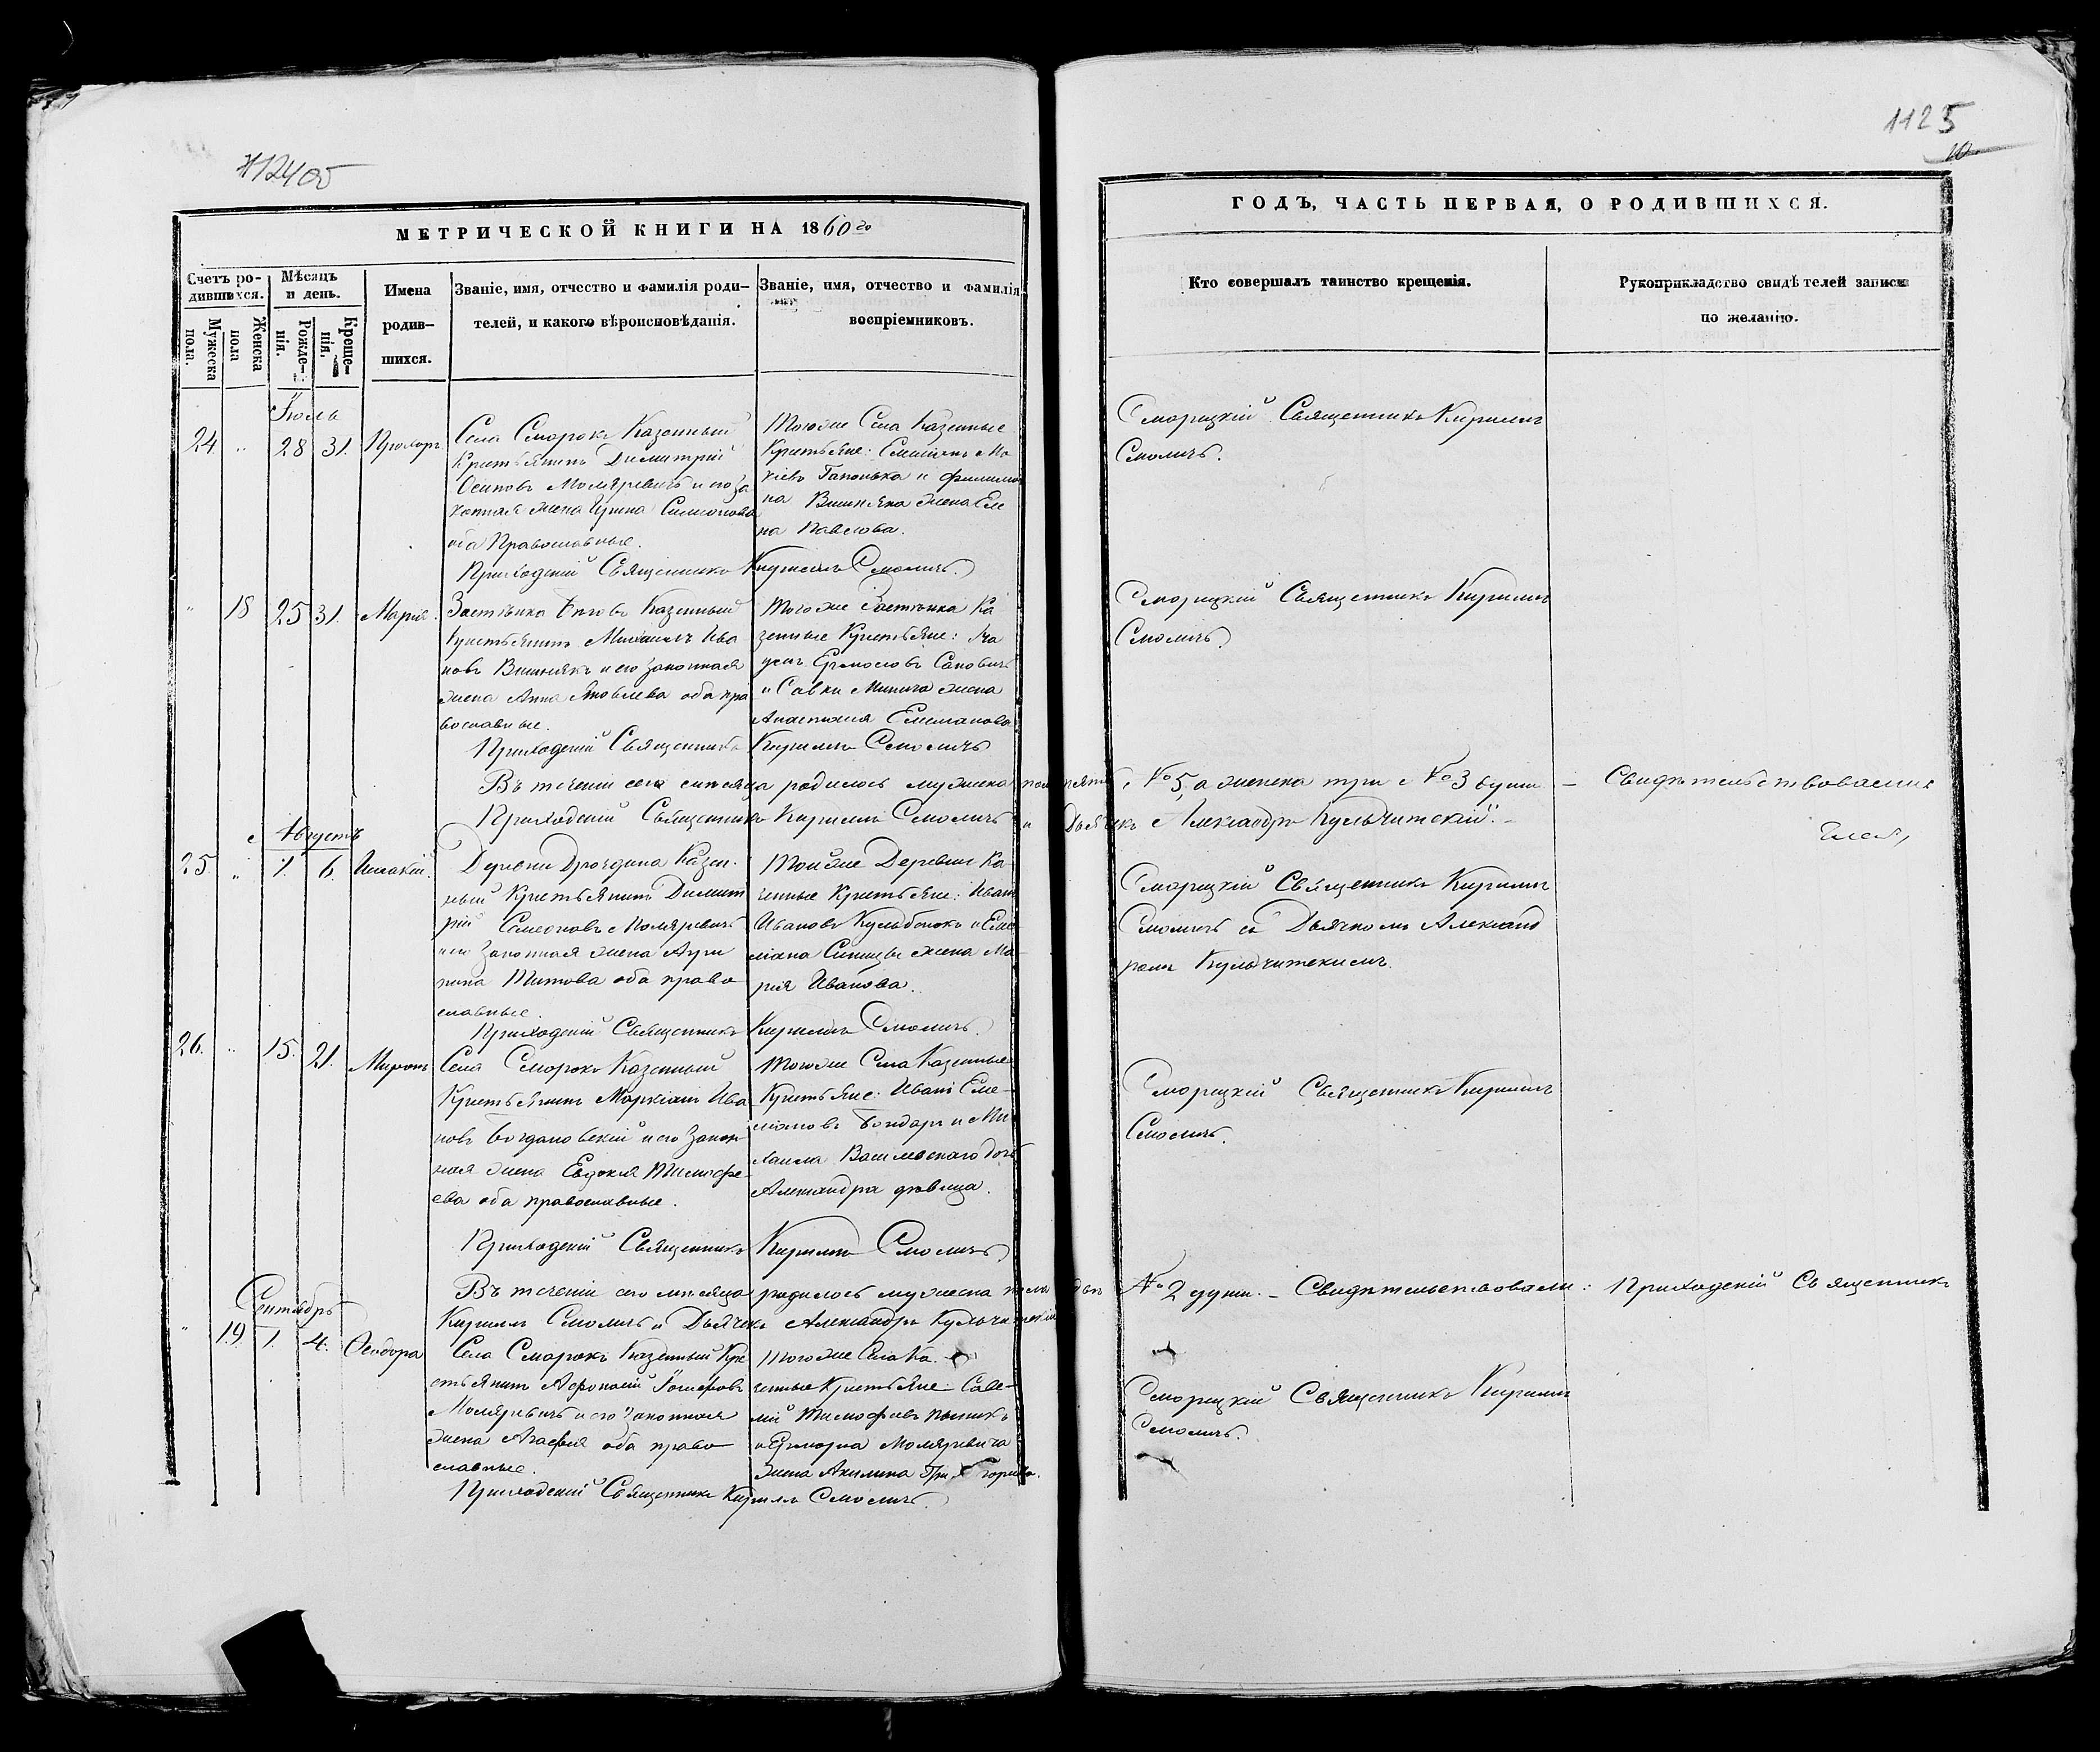 1125
10
МЕТРИЧЕСКОЙ КНИГИ НА 1860 го
ГОДЪ, ЧАСТЬ ПЕРВАЯ, О РОДИВШИХСЯ.
Счетъ ро-
дившихся.
Мужеска
пола.
Женска
пола
Мѣсяцъ
и день.
Рожде-
нія.
Креще-
нія.
Имена
родив-
шихся.
Званіе, имя, отчество и фамилія роди-
телей, и какого вѣроисповѣданія.
Званіе, имя, отчество и фамилія
воспріемниковъ.
Кто совершалъ таинство крещенія.
Рукоприкладство свидѣтелей записи
по желанію.
Іюль
24. " 28 31. Прохоръ
Села Сморокъ Казенный
Крестьянинъ Димитрій
Осиповъ Моляревичъ и его за
конная жена Ирина Симеонова
оба Православные.
Тогоже Села Казенные
Крестьяне: Симеонъ Мо
кіевъ Гапонька и Филимо
на Вишняка жена Еле
на Павлова.
Сморицкій Священникъ Кириллъ
Смоличъ.
Приходскій Священникъ Кириллъ Смоличъ.
" 18 25 31. Марія.
Застѣнка Казенный
Крестьянинъ Михаилъ Ива
новъ Вишнякъ и его законная
жена Анна Яковлева оба пра
вославные.
Тогоже Застѣнка Ка
зенные Крестьяне:
Сановичъ
и Савки Минича жена
Анастасія
Сморицкій Священникъ Кириллъ
Смоличъ
Приходскій Священникъ Кириллъ Смоличъ
Въ теченіи сего мѣсяца родилось мужеска пола пять № 5, а женска три № 3 души — Свидѣтельствовали
Приходскій Священникъ Кириллъ Смоличъ и Дьячекъ Александръ Кульчитскій.
Августъ
25. " 1. 6. Исаакій.
Деревни Дроздина Казен.
ный Крестьянинъ Димит
рій Симеоновъ Моляревичъ
и его законная жена Ири
на Титова оба право
славные.
Тойже Деревни Ка
зенные Крестьяне: Иванъ
Ивановъ и Еме
ліана Синицы жена Ма
рія Иванова.
Сморицкій Священникъ Кириллъ
Смоличъ съ Дьячкомъ Александ
ромъ Кульчитскимъ.
Приходскій Священникъ Кириллъ Смоличъ.
26. " 15. 21. Миронъ
Села Сморокъ Казенный
Крестьянинъ Маркіанъ Ива
новъ Богдановскій и его Закон
ная жена Евдокія Тимофе-
ева оба православные.
Тогоже Села Казенные
Крестьяне: Иванъ Еме-
ліановъ Бондарь и Ми
хаила Василевскаго дочь
Александра дѣвица.
Сморицкій Священникъ Кириллъ
Смоличъ.
Приходскій Священникъ Кириллъ Смоличъ
Въ теченіи сего мѣсяца родилось мужеска пола двѣ № 2 души. — Свидѣтельствовали: Приходскій Священникъ
Кириллъ Смоличъ и Дьячекъ Александръ Кульчитскій
Сентябрь
" 19. 1. 4. Ѳеодора
Села Сморокъ Казенный Кре
стьянинъ Афонасій Іосифовъ
Моляревичъ и его законная
жена Агафія оба право
славные.
Тогоже Села Ка.
зенные Крестьяне: Саве-
лій Тимофеевъ
и Моляревича
жена Акилина Григорьева.
Сморицкій Священникъ Кириллъ
Смоличъ.
Приходскій Священникъ Кириллъ Смоличъ.